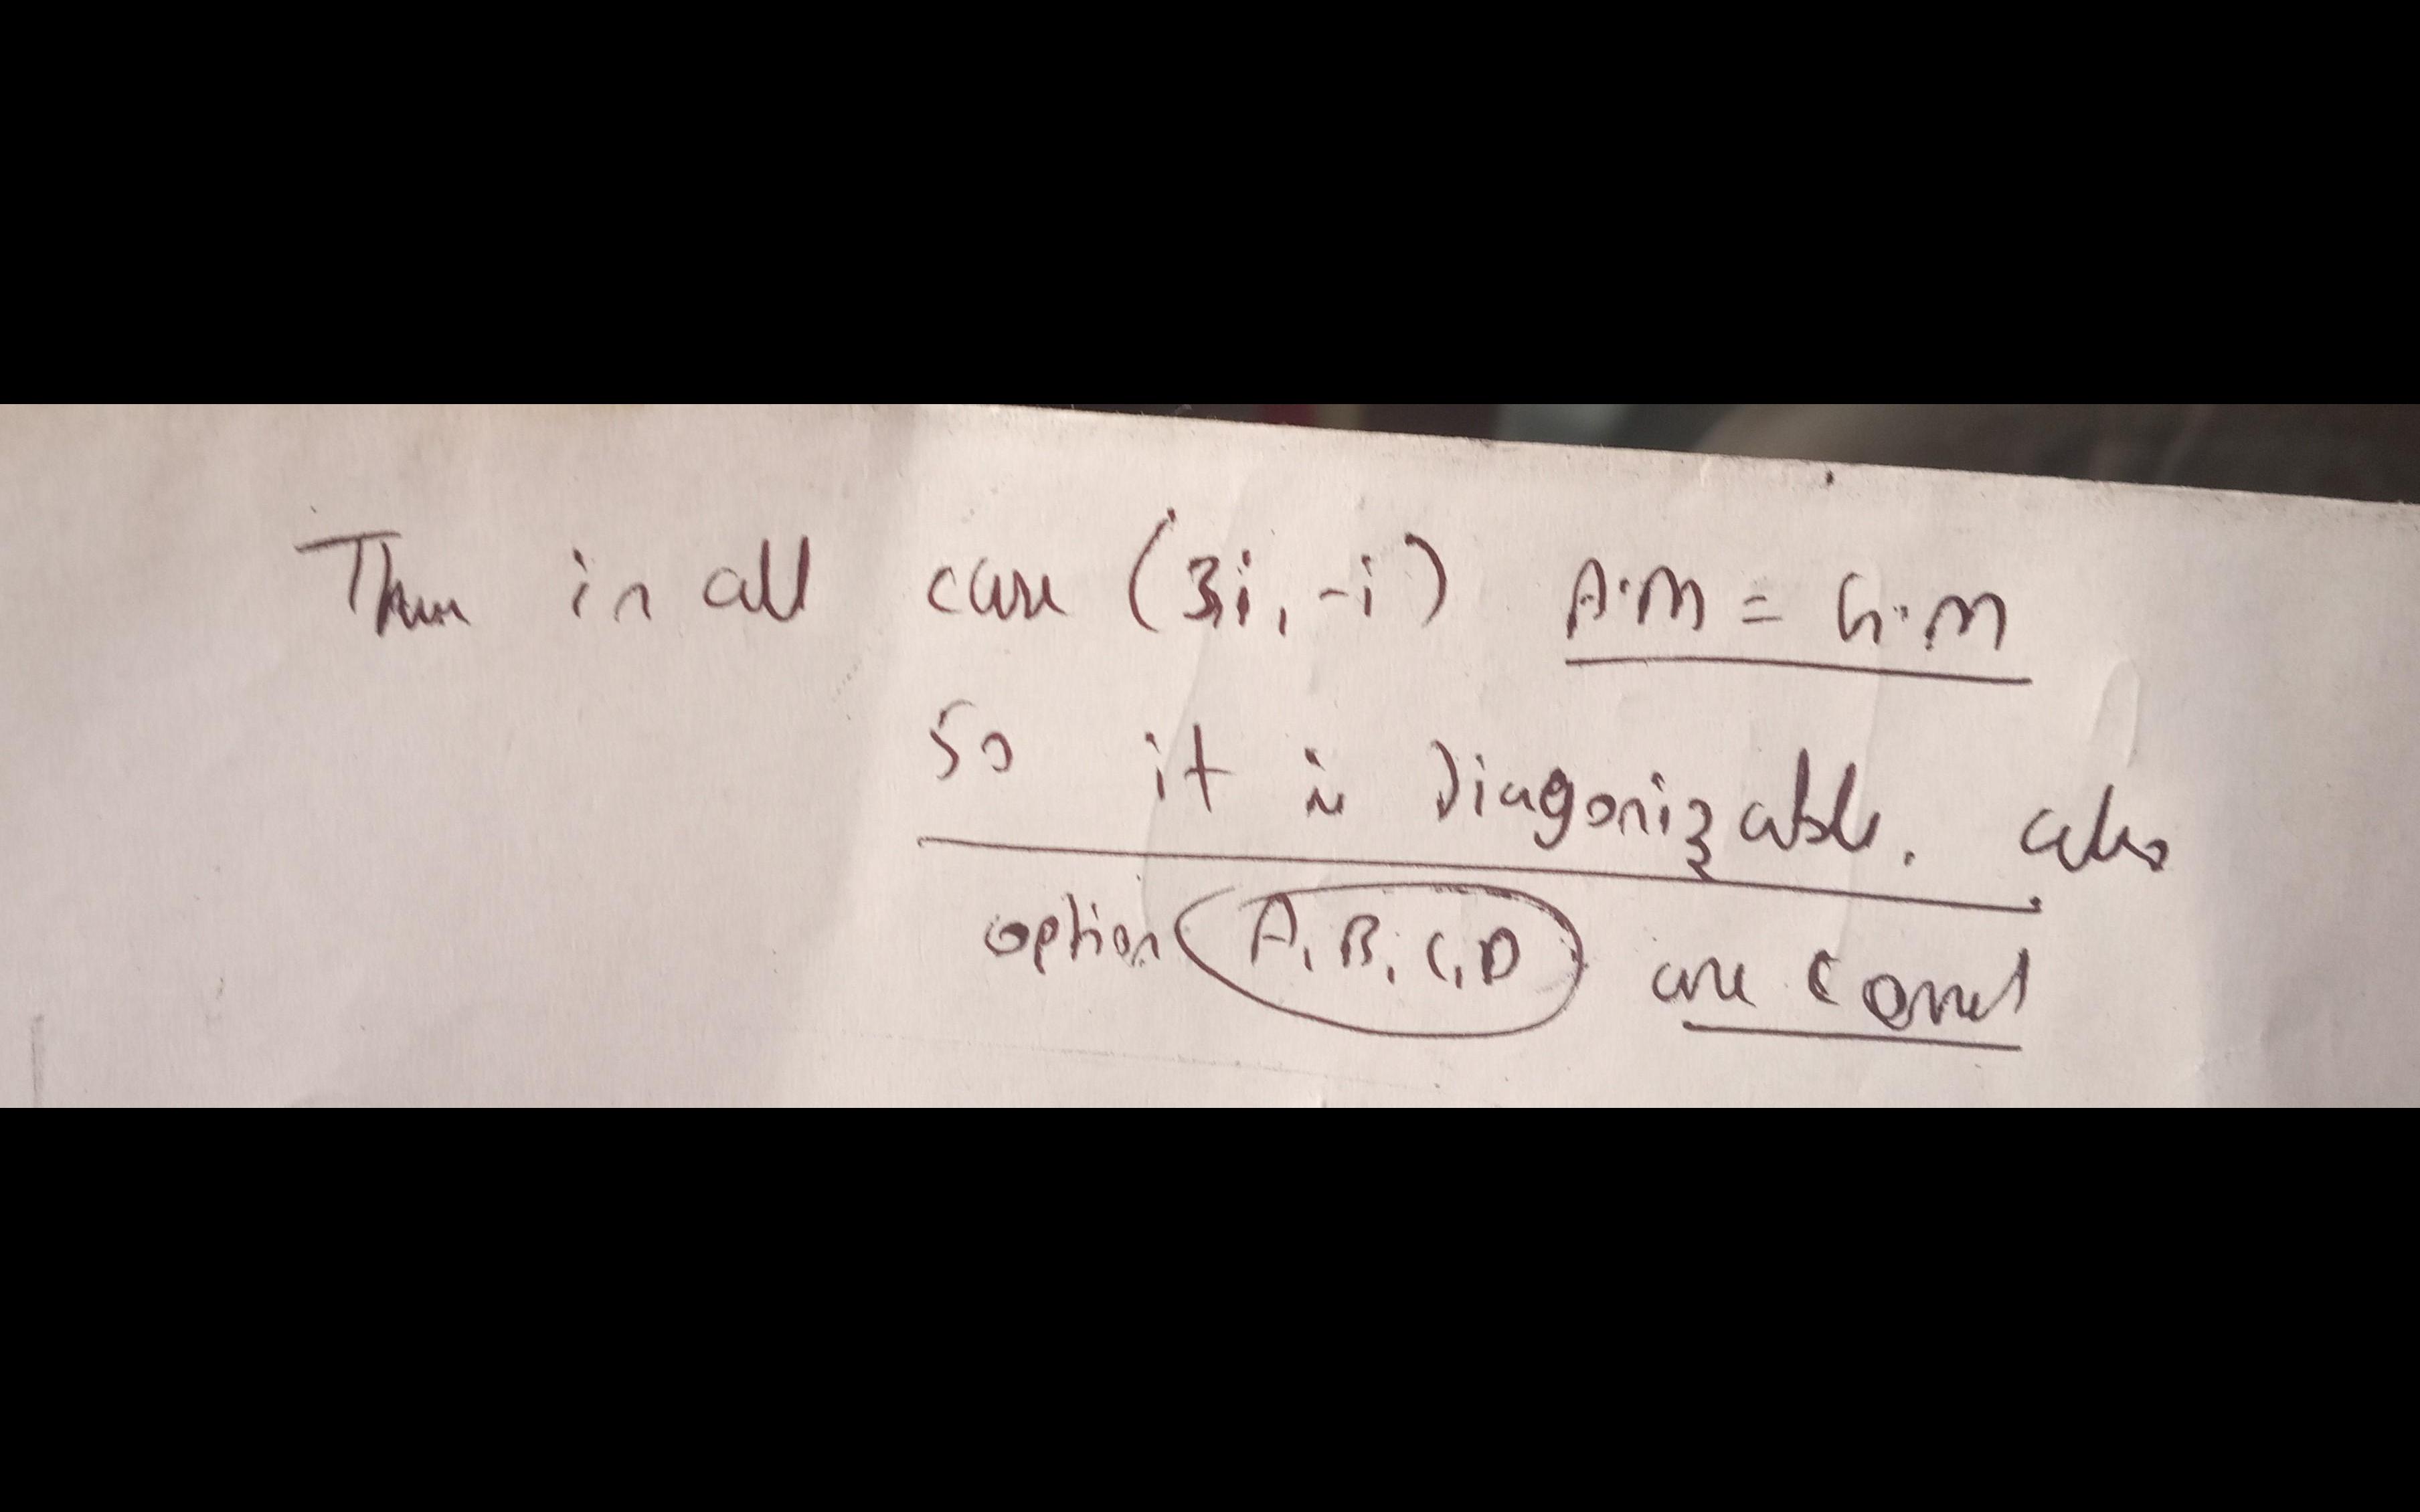 Then in all case (3,i,-i) A.M = G.M
So it is Diagonizable. also
option A, B, C, D are correct